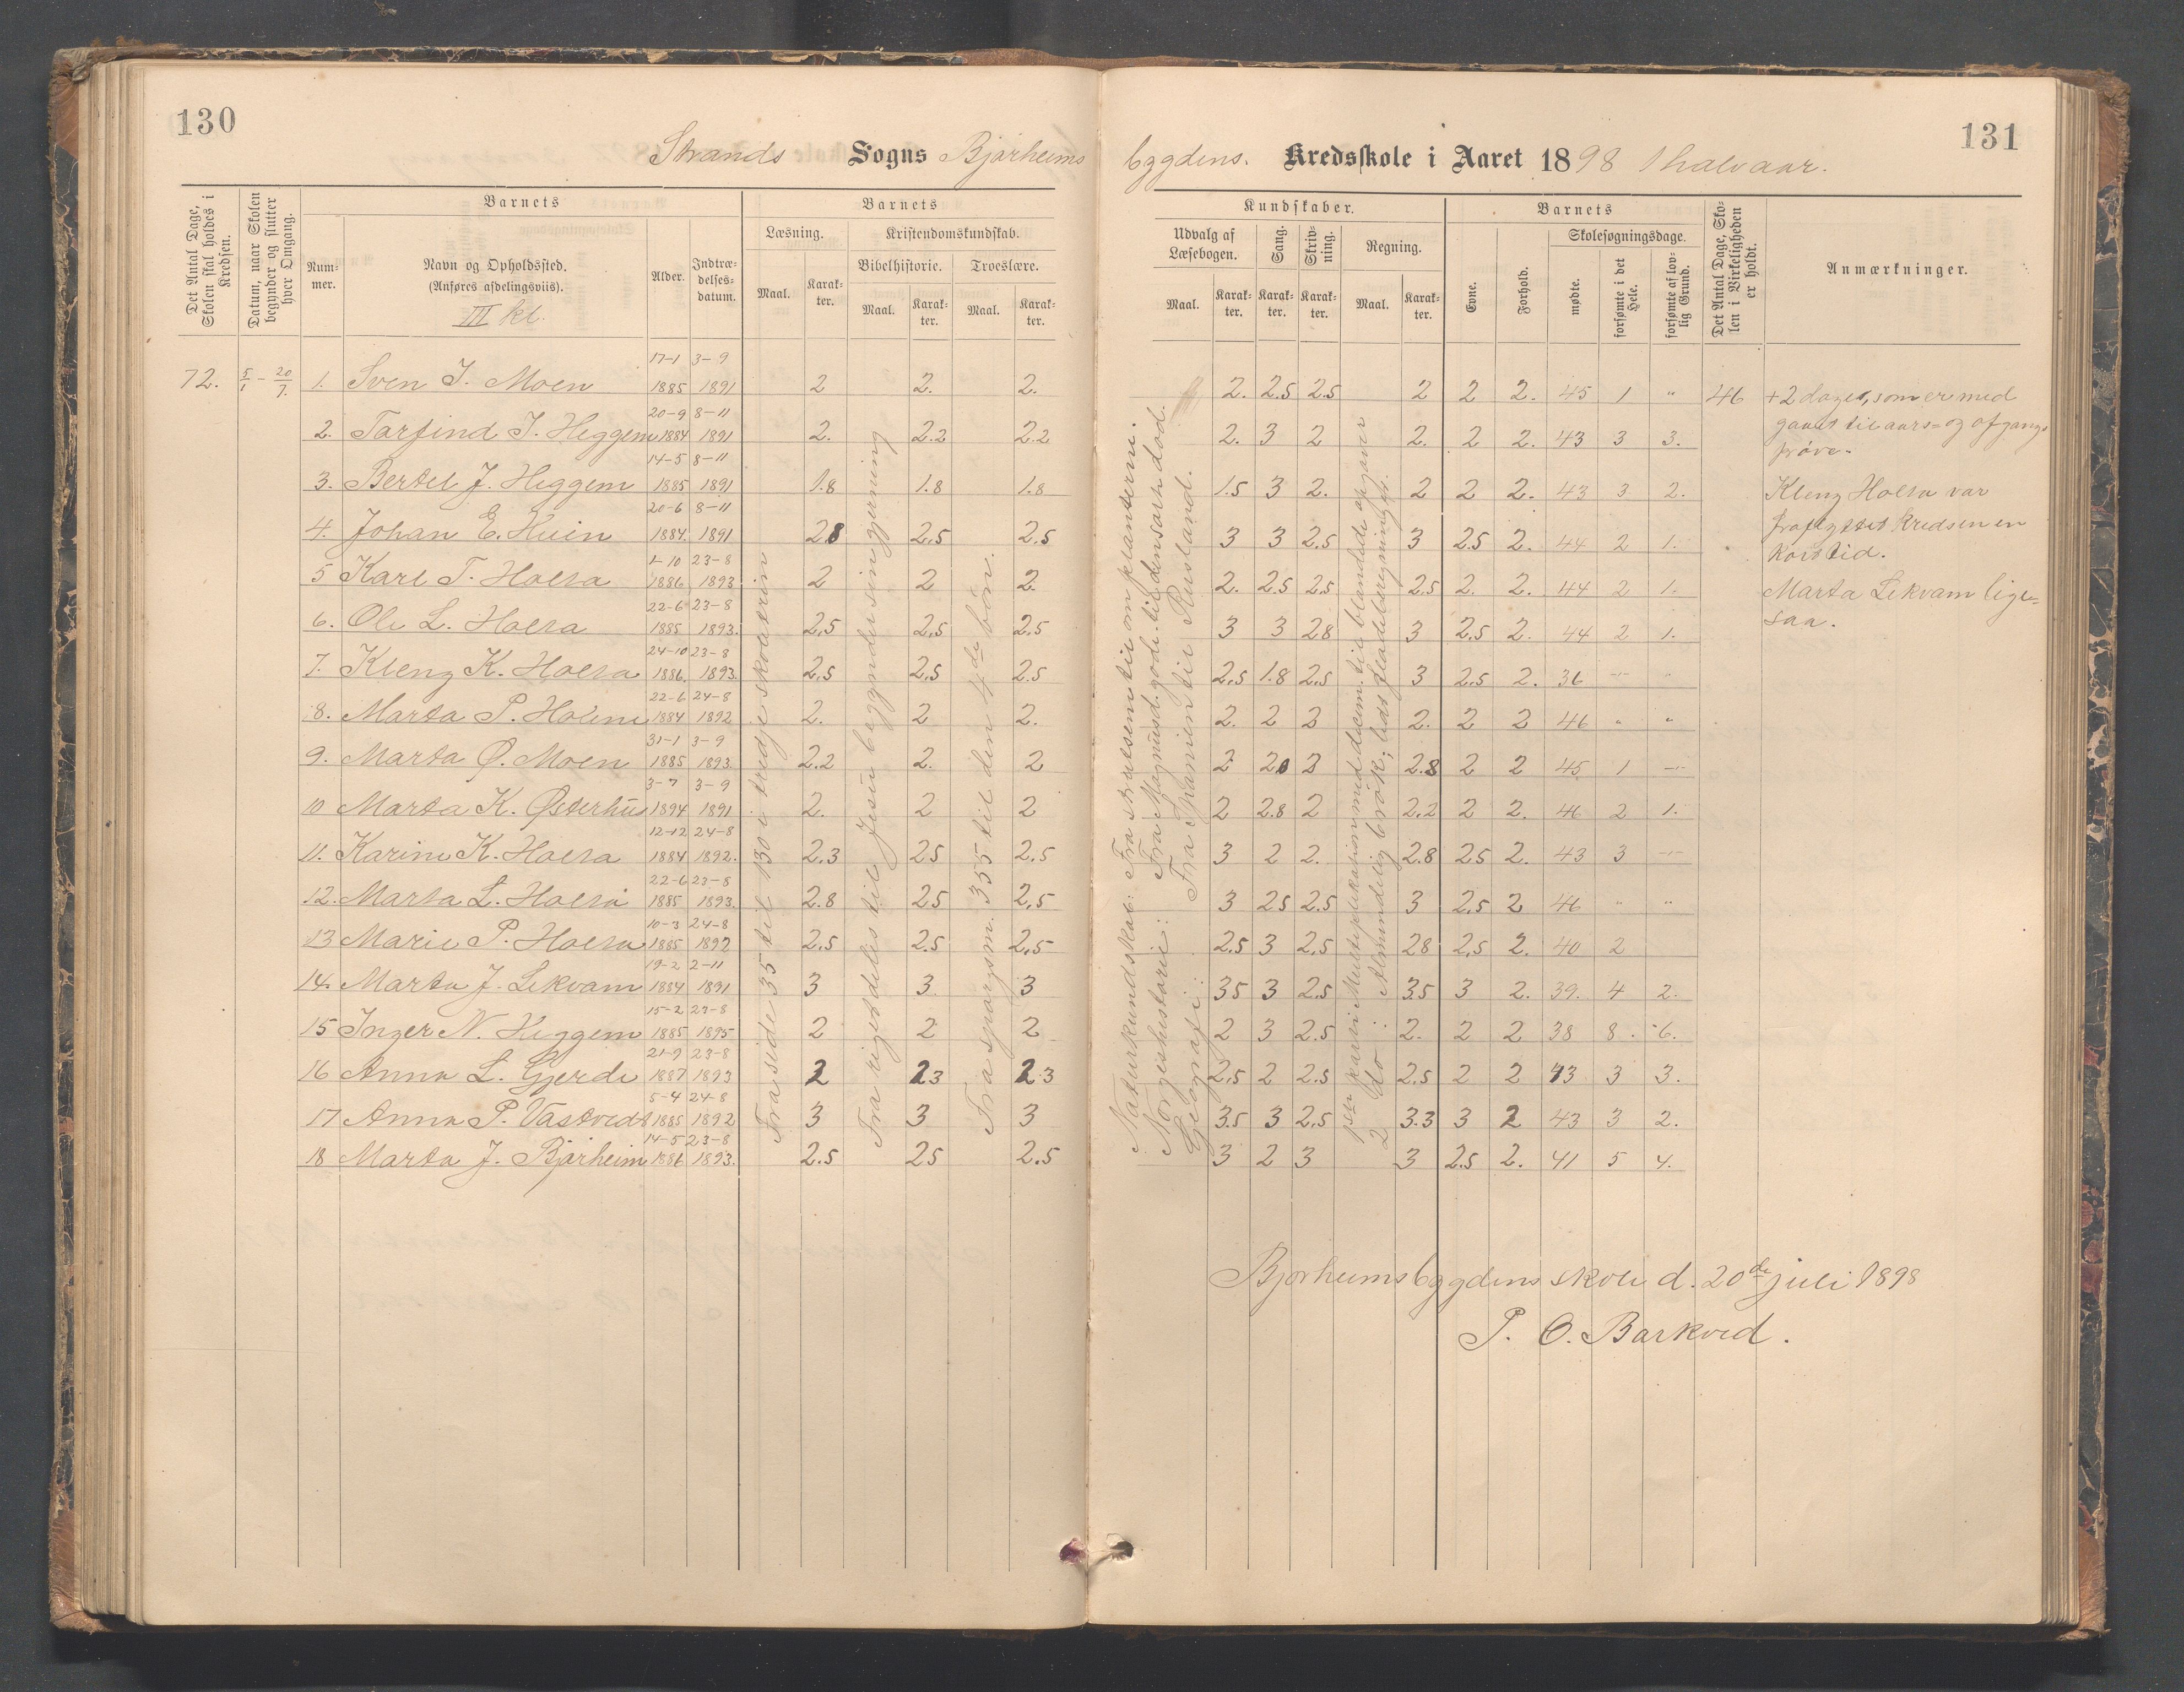 130
131
Strands Sogns Bjørheims bygdens. Kredsskole i Aaret 1898 1 halvaar.
Det Antal Dage, Skolen skal holdes i Kredsen.
Datum, naar Skolen begynder og slutter hver Omgang.
Barnets
Nummer.
Navn og Opholdssted. (Anføres afdelingsviis). III kl.
Alder.
Indtrædelsesdatum.
Barnets
Læsning.
Maal.
Karakter.
Kristendomskundskab.
Bibelhistorie.
Maal.
Karakter.
Troeslære.
Maal.
Karakter.
Kundskaber.
Udvalg af Læsebogen.
Maal.
Karakter.
Sang.
Karakter.
Skrivning.
Karakter.
Regning.
Maal.
Karakter.
Barnets
Evne.
Forhold.
Skolesøgningsdage.
mødte.
forsømte i det Hele.
forsømte af lovlig Grund.
Det Antal Dage, Skolen i Virkeligheden er holdt.
Anmærkninger.
72. 5/1 - 20/7. 1. Sven T. Moen 17-1 1885 3-9 1891 2 2. 2. 2. 2.5 2.5 2 2 2. 45 1 " 46
2. Torfind T. Heggem 20-9 1884 8-11 1891 2. 2.2 2.2 2. 3 2 2. 2 2. 43 3 3.
3. Bertel J. Heggem 14-5 1885 8-11 1891 1.8 1.8 1.8 1.5 3 2. 2 2 2. 43 3 2.
4. Johan E. Hein 20-6 1884. 8-11 1891 2.8 2.5 2.5 3 3 2.5 3 2.5 2. 44 2 1.
5 Karl T. Holta 1-10 1886 23-8 1893 2 2 2 2. 2.5 2.5 2.5 2. 2. 44 2 1.
6. Ole L. Holta 22-6 1885 23-8 1893. 2.5 2.5 2.5 3 3 2.8 3 2.5 2. 44 2 1.
7. Kleng K. Holta 24-10 1886. 23-8 1893. 2.5 2.5 2.5 2.5 1.8 2.5 3 2.5 2. 36 " "
8. Marta P. Holta 22-6 1884 24-8 1892 2. 2 2. 2. 2 2 2. 2 2 46 " "
9. Marta Ø. Moen 31-1 1885 3-9 1893. 2.2 2. 2 2 2.8 2 2.8 2 2 45 1 "
10 Marta K. Østerhus 3-7 1894 3-9 1891 2. 2 2 2 2.8 2 2.2 2 2. 46 2 1.
11. Karine K. Holta 12-12 1884 24-8 1892. 2.3 2.5 2.5 3 2 2. 2.8 2.5 2. 43 3 "
12. Marta L. Holta 22-6 1885 23-8 1893. 2.8 2.5 2.5 3 2.5 2.5 3 2.5 2 46 " "
13 Marie P. Holta 10-3 1885 24-8 1892 2.5 2.5 2.5 2.5 3 2.5 2.8 2.5 2. 40 2
14. Marta J. Lekvam 19-2 1884 2-11 1891 3 3. 3 3.5 3 2.5 3.5 3 2. 39. 4 2.
15 Inger N. Heggem 15-2 1885 27-8 1895 2 2 2 2 3 2.5 2. 2 2 38 8 6.
16 Anna L. Gjerde 21-9 1887 23-8 1893 2 2.3 2.3 2.5 2 2.5 2.5 2 2 43 3 3.
17 Anna P. Vastvedt 5-4 1885 24-8 1892 3 3 3 3.5 3 2.5 3.3 3 2 43 3 2.
18 Marta J. Bjørheim 14-5 1886 23-8 1893. 2.5 2.5 2.5 3 2 3 3 2.5 2. 41 5 4.
Fra side 35 til 130 i tredje skoletrin
Fra riget deles til Jesu begyndelsesingjerning
Fra spørgsm. 355 til den 4de bøn.
Naturkundskab: Fra skratsen til om planterne.
Norgeshistorie: Fra Magnus d. gode til densards død.
Geografi: Fra Spanien til Rusland.
1ste karri Multiplikation med decim. til blandede opgaver
2 do Almindelig brøk; lids fladeberegninger.
+2 dage, som er med
gaaet til aars= og afgangs
prøve.
Kleng Holta var
fraflyttet kredsen en
kort tid.
Marta Lekvam lige=
saa.
Bjørheimsbygdens skole d. 20de juli 1898
P. O. Barkved.